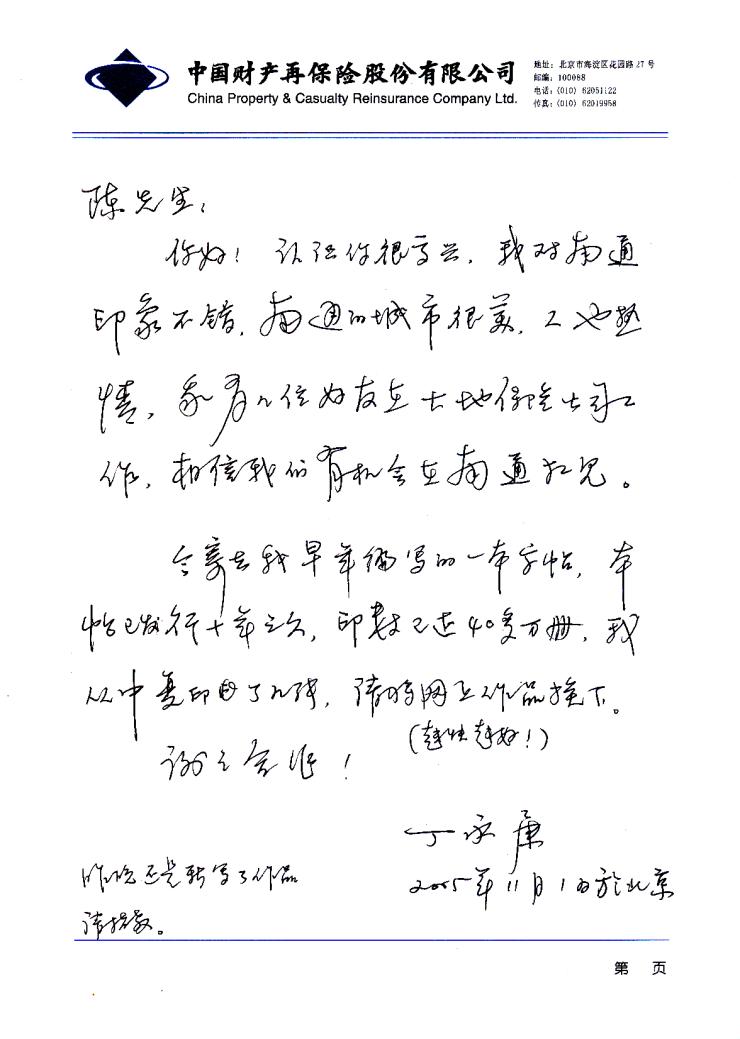 中国财产再保险股份有限公司
China Property & Casualty Reinsurance Company Ltd.
地址：北京市海淀区花园路27号
邮编：100088
电话：(010) 62051122
传真：(010) 62019958
陈先生：
你好！认识你很高兴，我对南通
印象不错，南通的城市很美，人也热
情，我有几位好友在大地保险公司工
作，相信我们有机会在南通相见。
今寄去我早年编写的一本字帖，本
帖已发行十年之久，印数已达40多万册，我
从中复印了几张，请将网上作品换下。
(越快越好！)
谢谢合作！
丁永康
2005年11月1日于北京
昨晚还是新写了作品
请指教。
第 页